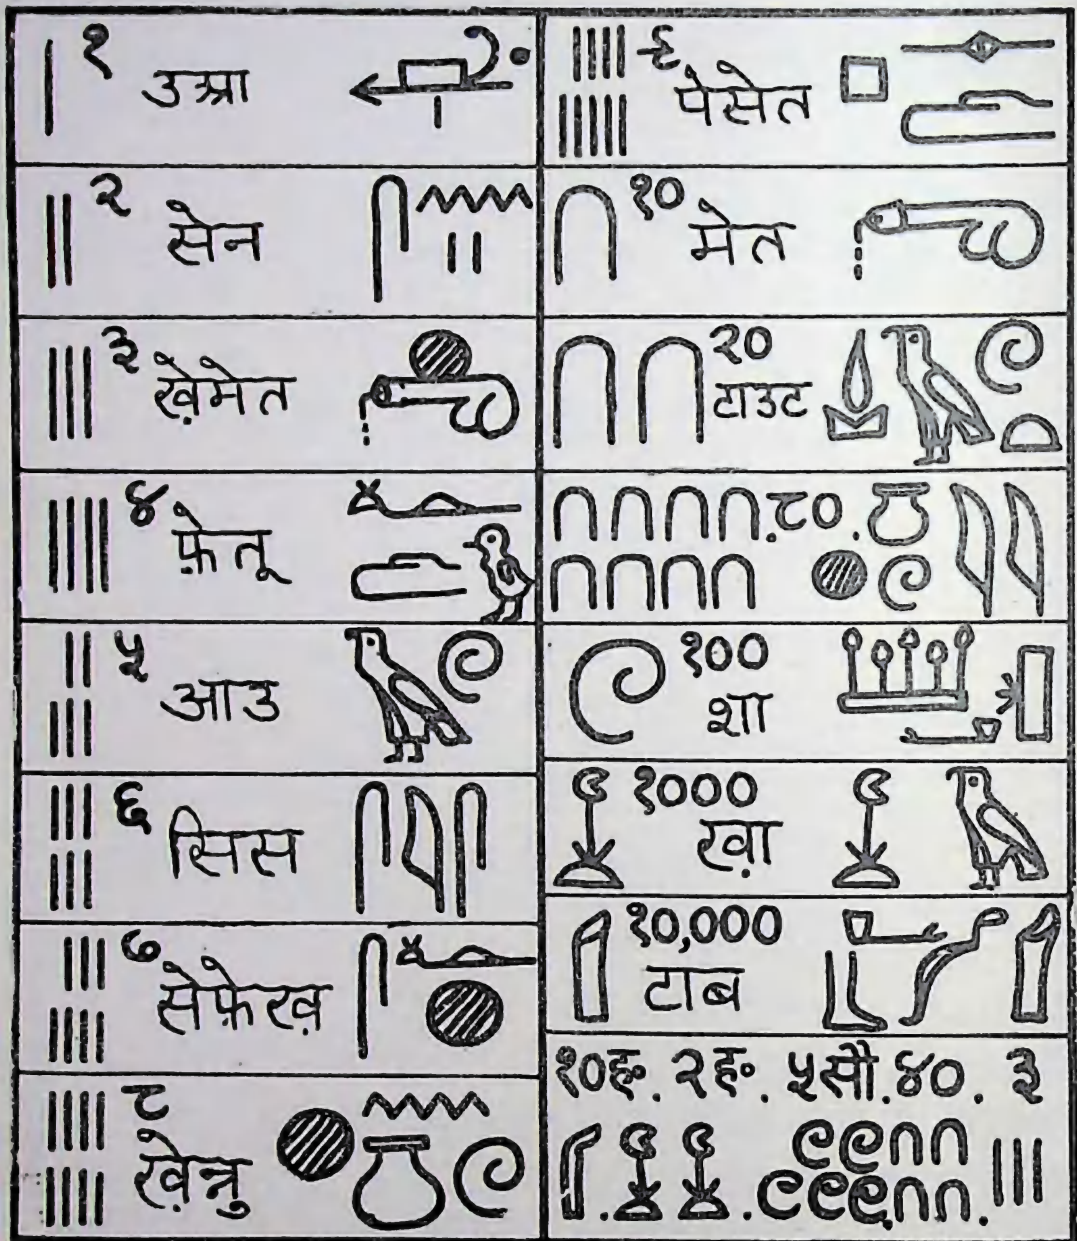 १
उआ
२
सेन
३
ख़ेमेत
४
फ़ेतू
५
आउ
६
सिस
७
सेफ़ेख़
८
ख़ेन्नु
९
पेसेत
१०
मेत
२०
टाउट
८०
१००
शा
१०००
ख़ा
१०,०००
टाब
१०ह. २ह. ५सौ.४०. ३